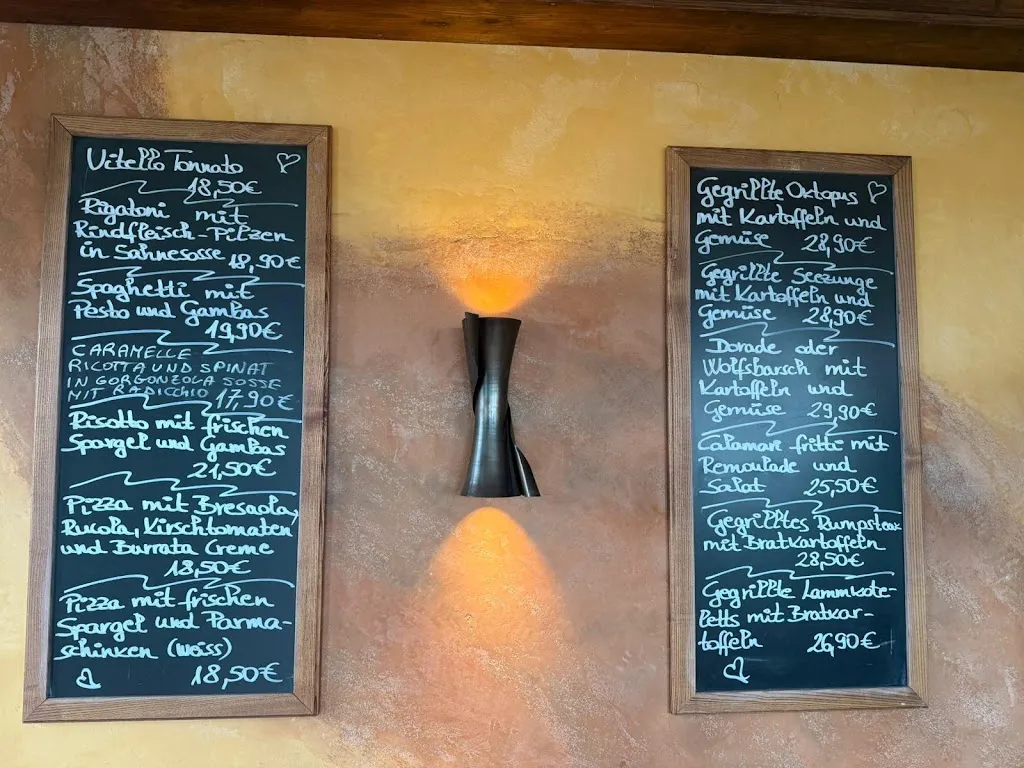 Vitello Tonnato
18,50€
Rigatoni mit
Rindfleisch-Pilzen
in Sahnesosse 18,90€
Spaghetti mit
Pesto und Gambas
19,90€
CARAMELLE
RICOTTA UND SPINAT
IN GORGONZOLA SOSSE
MIT RADICCHIO 17,90€
Risotto mit frischen
Spargel und Gambas
21,50€
Pizza mit Bresaola,
Rucola, Kirschtomaten
und Burrata Creme
18,50€
Pizza mit frischen
Spargel und Parma-
schinken (weiss)
18,50€
Gegrillte Oktopus
mit Kartoffeln und
Gemüse 28,90€
Gegrillte Seezunge
mit Kartoffeln und
Gemüse 28,90€
Dorade oder
Wolfsbarsch mit
Kartoffeln und
Gemüse 29,90€
Calamari fritti mit
Remoulade und
Salat 25,50€
Gegrilltes Rumpsteak
mit Bratkartoffeln
28,50€
Gegrillte Lammkote-
letts mit Bratkar-
toffeln 26,90€